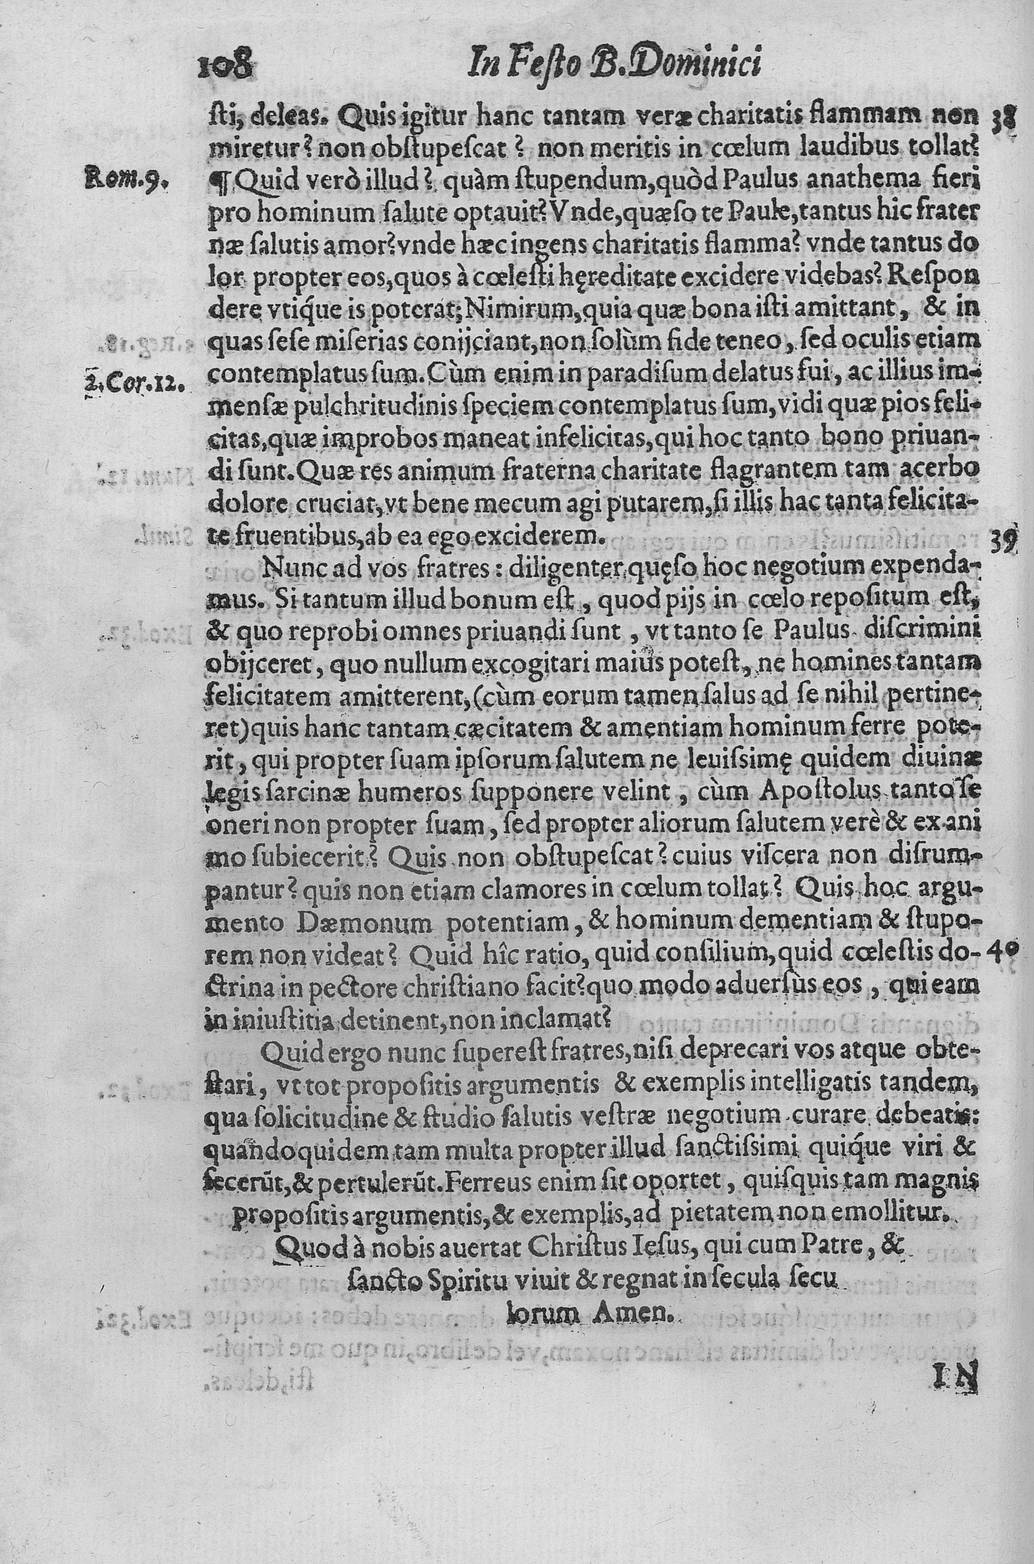 108 In Festo B. Dominici
sti, deleas. Quis igitur hanc tantam veræ charitatis flammam non 38
miretur? non obstupescat? non meritis in cœlum laudibus tollat?
Rom. 9. ¶ Quid verò illud? quàm stupendum, quòd Paulus anathema fieri
pro hominum salute optauit? Vnde, quæso te Paule, tantus hic frater
næ salutis amor? vnde hæc ingens charitatis flamma? vnde tantus do
lor propter eos, quos à cœlesti hęreditate excidere videbas? Respon
dere vtiq́ue is poterat; Nimirum, quia quæ bona isti amittant, & in
quas sese miserias conijciant, non solùm fide teneo, sed oculis etiam
2. Cor. 12. contemplatus sum. Cùm enim in paradisum delatus fui, ac illius im-
mensæ pulchritudinis speciem contemplatus sum, vidi quæ pios feli-
citas, quæ improbos maneat infelicitas, qui hoc tanto bono priuan-
di sunt. Quæ res animum fraterna charitate flagrantem tam acerbo
dolore cruciat, vt bene mecum agi putarem, si illis hac tanta felicita-
te fruentibus, ab ea ego exciderem. 39
Nunc ad vos fratres: diligenter quęso hoc negotium expenda-
mus. Si tantum illud bonum est, quod pijs in cœlo repositum est,
& quo reprobi omnes priuandi sunt, vt tanto se Paulus discrimini
obijceret, quo nullum excogitari maius potest, ne homines tantam
felicitatem amitterent, (cùm eorum tamen salus ad se nihil pertine-
ret) quis hanc tantam cæcitatem & amentiam hominum ferre pote-
rit, qui propter suam ipsorum salutem ne leuissimę quidem diuinæ
legis sarcinæ humeros supponere velint, cùm Apostolus tanto se
oneri non propter suam, sed propter aliorum salutem verè & ex ani
mo subiecerit? Quis non obstupescat? cuius viscera non disrum-
pantur? quis non etiam clamores in cœlum tollat? Quis hoc argu-
mento Dæmonum potentiam, & hominum dementiam & stupo-
rem non videat? Quid hîc ratio, quid consilium, quid cœlestis do- 40
ctrina in pectore christiano facit? quo modo aduersùs eos, qui eam
in iniustitia detinent, non inclamat?
Quid ergo nunc superest fratres, nisi deprecari vos atque obte-
stari, vt tot propositis argumentis & exemplis intelligatis tandem,
qua solicitudine & studio salutis vestræ negotium curare debeatis:
quandoquidem tam multa propter illud sanctissimi quiq́ue viri &
fecerūt, & pertulerūt. Ferreus enim sit oportet, quisquis tam magnis
propositis argumentis, & exemplis, ad pietatem non emollitur.
Quod à nobis auertat Christus Iesus, qui cum Patre, &
sancto Spiritu viuit & regnat in secula secu
lorum Amen.
IN